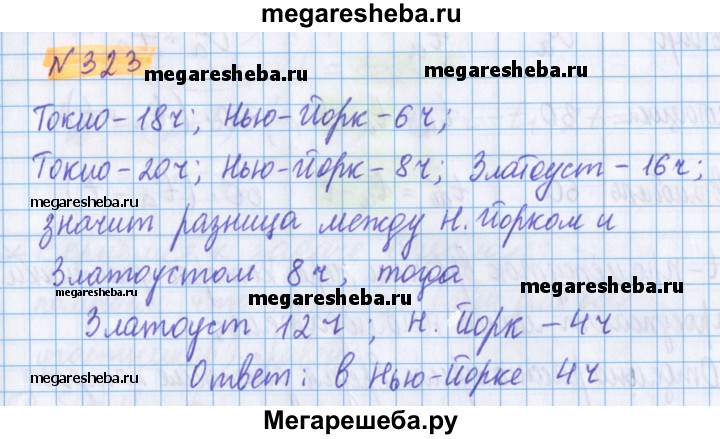 megaresheba.ru
N 323
megaresheba.ru megaresheba.ru
Токио - 18ч; Нью-Йорк - 6ч;
megaresheba.ru
Токио - 20ч; Нью-Йорк - 8ч; Златоуст - 16ч;
megaresheba.ru megaresheba.ru
значит разница между Н. Йорком и
Златоустом 8ч, тогда
megaresheba.ru megaresheba.ru
Златоуст 12ч; Н. Йорк - 4ч
megaresheba.ru megaresheba.ru
Ответ: в Нью-Йорке 4ч
Мегарешеба.ру